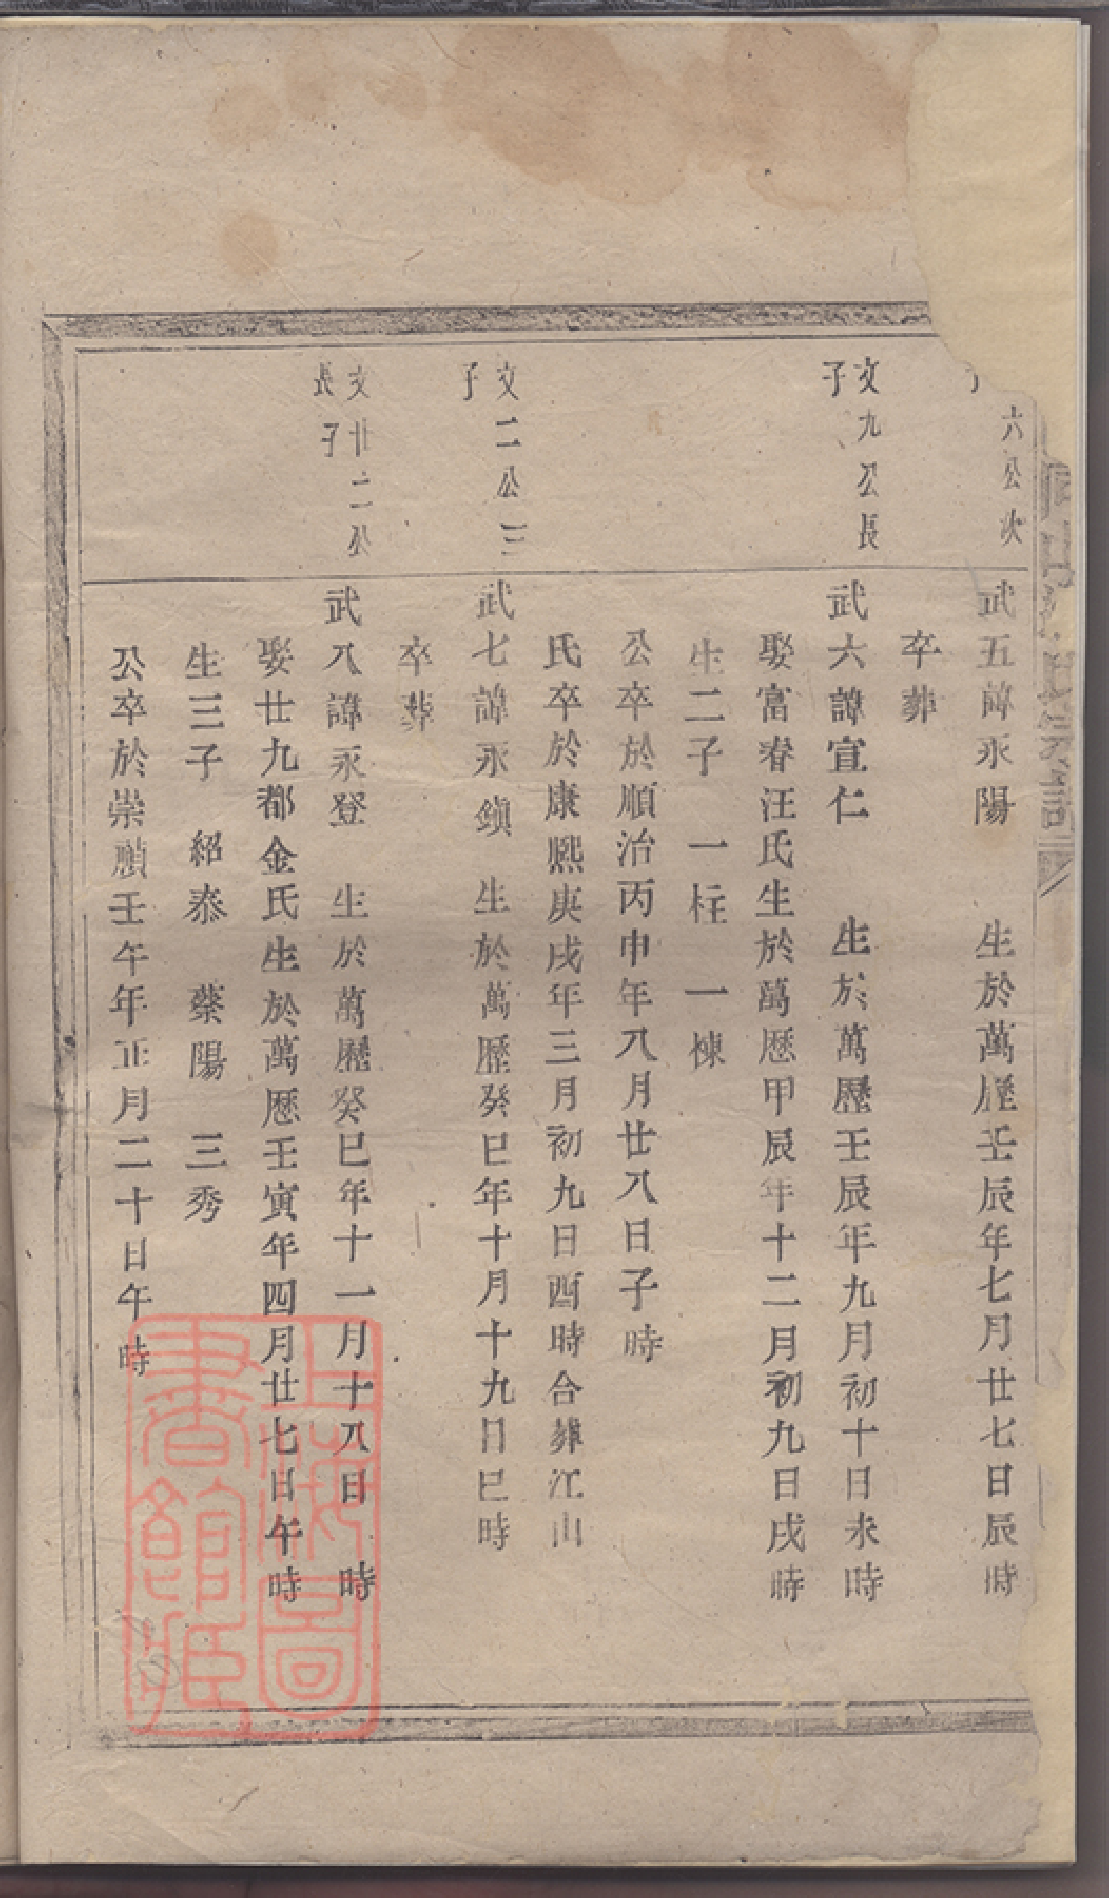 六公次
子
武五諱永陽　生於萬歷壬辰年七月廿七日辰時
卒葬
文九公長
子
武六諱宣仁　生於萬歷壬辰年九月初十日未時
娶富春汪氏生於萬歷甲辰年十二月初九日戌時
生二子　一柱　一棟
公卒於順治丙申年八月廿八日子時
氏卒於康熙庚戌年三月初九日酉時合葬江山
文二公三
子
武七諱永鎮　生於萬歷癸巳年十月十九日巳時
卒葬
文廿二公
長子
武八諱永登　生於萬歷癸巳年十一月十八日　時
娶廿九都金氏生於萬歷壬寅年四月廿七日午時
生三子　紹泰　蔡陽　三秀
公卒於崇禎壬午年正月二十日午時
上海圖
書館藏